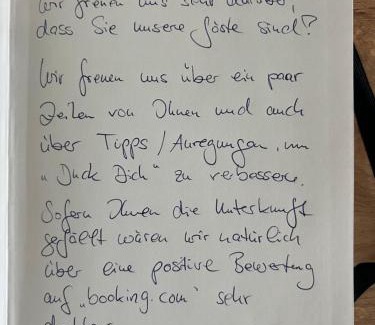 Wir freuen uns sehr darüber,
dass Sie unsere Gäste sind?
Wir freuen uns über ein paar
Zeilen von Ihnen und auch
über Tipps / Anregungen, um
"Duck Dich" zu verbessern.
Sofern Ihnen die Unterkunft
gefällt wären wir natürlich
über eine positive Bewertung
auf "booking.com" sehr